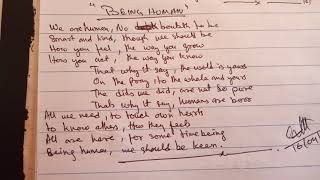 "BEING HUMAN"
We are human, No doubt to be
Smart and kind, though we should be
How you feel, the way you grow
How you act, the way you know
That why it say, the world is yours
On the pray, to the whole and yours
The dids we did, are not so pure
That's why it say, Humans are poor
All we need, to touch own hearts
to know others, How they feels
All are here, for some time being
Being human, we should be keen.